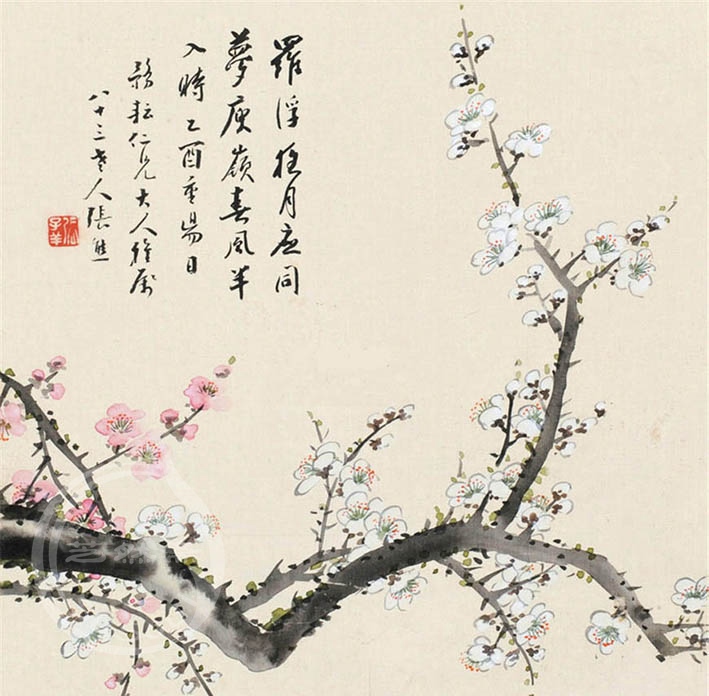 羅浮月应同
夢庾嶺春風半
入時乙酉重陽日
耘仁兄大人雅属
八十三老人張熊